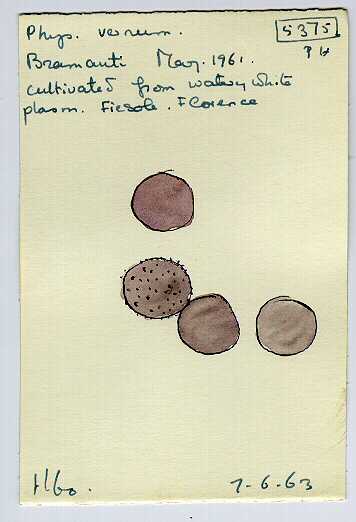 Phys. verum.
5375
Bramanti May. 1961.
cultivated from watery white
plasm. Fiesole. Florence
7-6-63